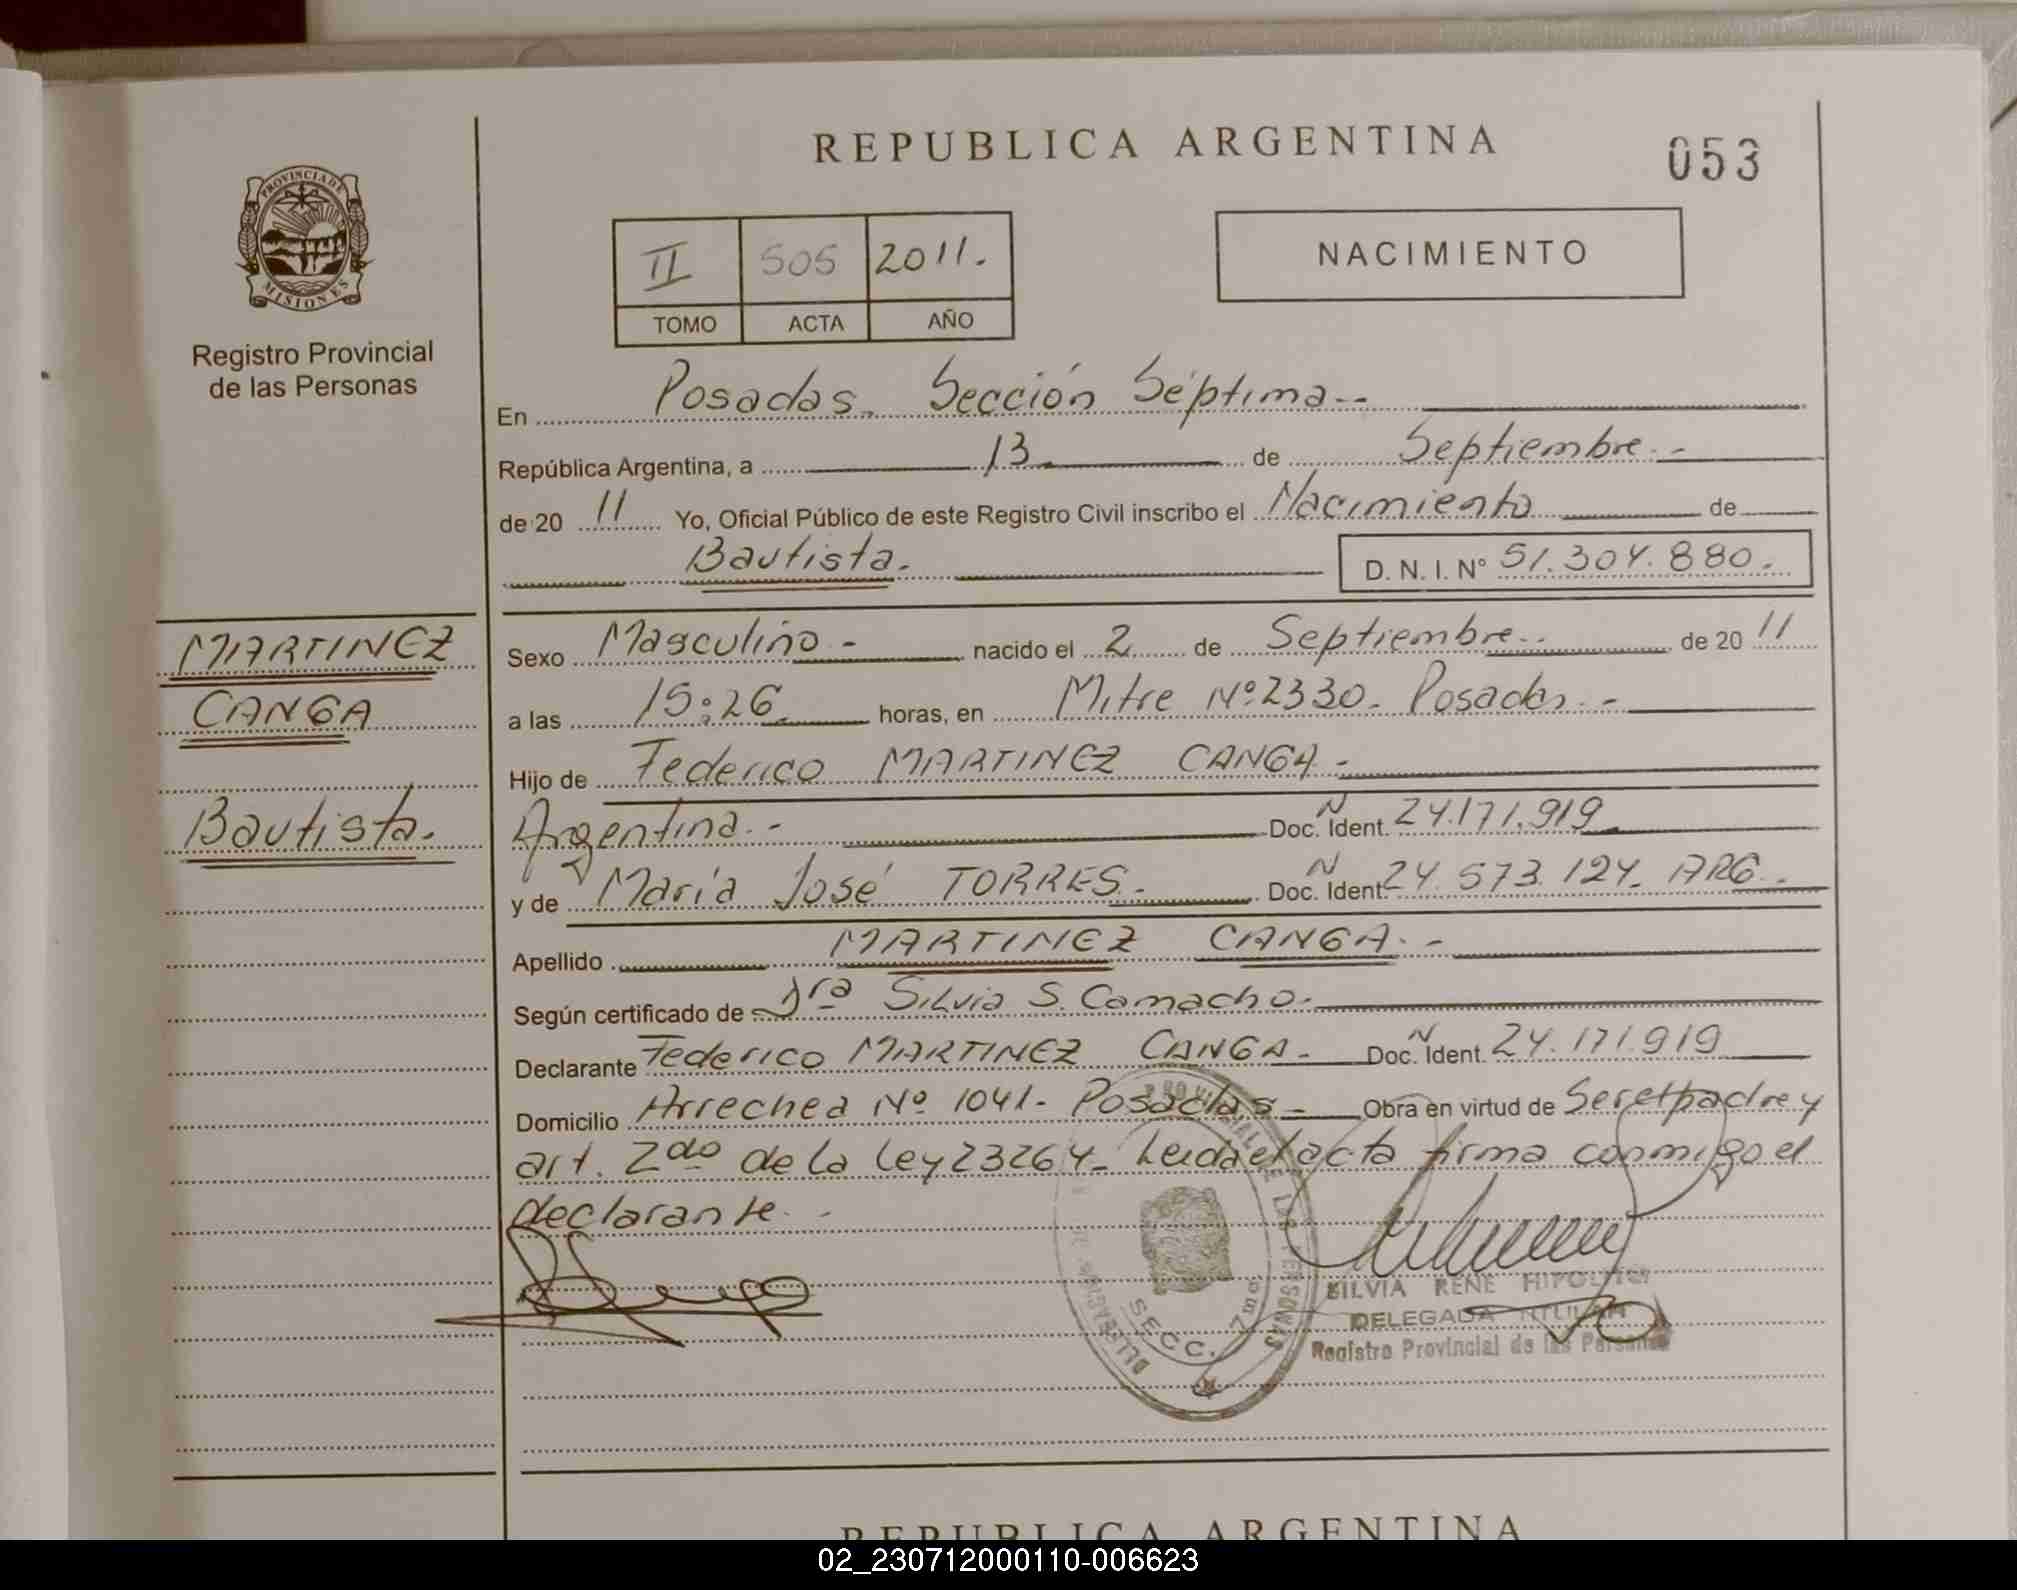 REPUBLICA ARGENTINA
053
PROVINCIA DE
MISIONES
Registro Provincial
de las Personas
II 505 2011.
TOMO ACTA AÑO
NACIMIENTO
En Posadas. Sección Séptima.-
República Argentina, a 13 de Septiembre.-
de 20 11 Yo, Oficial Público de este Registro Civil inscribo el Nacimiento de
Bautista. D. N. I. Nº 51.304.880.
MARTINEZ
CANGA
Bautista.
Sexo Masculino - nacido el 2 de Septiembre.. de 20 11
a las 15:26 horas, en Mitre Nº 2330. Posadas.-
Hijo de Federico MARTINEZ CANGA.-
Argentina.- Doc. N Ident. 24.171.919
y de María José TORRES.- Doc. N Ident. 24.573.124. ARG.-
Apellido MARTINEZ CANGA.-
Según certificado de Dra Silvia S. Camacho.
Declarante Federico MARTINEZ CANGA. Doc. N Ident. 24.171919
Domicilio Arrechea Nº 1041- Posadas - Obra en virtud de Ser el padre y
art. 2do de la Ley 23264- Leida el acta firma conmigo el
declarante.-
SECC. 7ma
SILVIA RENE HIPOLITO
DELEGADA TITULAR
Registro Provincial de las Personas
REPUBLICA ARGENTINA
02_230712000110-006623